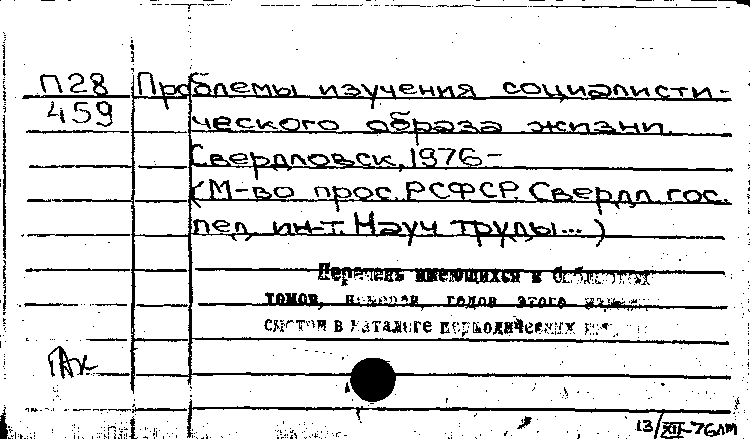 П28 Проблемы изучения социалисти-
459 ческого образа жизни.
Свердловск, 1976-
(М-во прос. РСФСР. Свердл. гос.
пед. ин-т. Науч. труды...)
Перечень имеющихся в библиотеке
томов, номеров, годов этого издания
смотри в каталоге периодических
13/XII-76